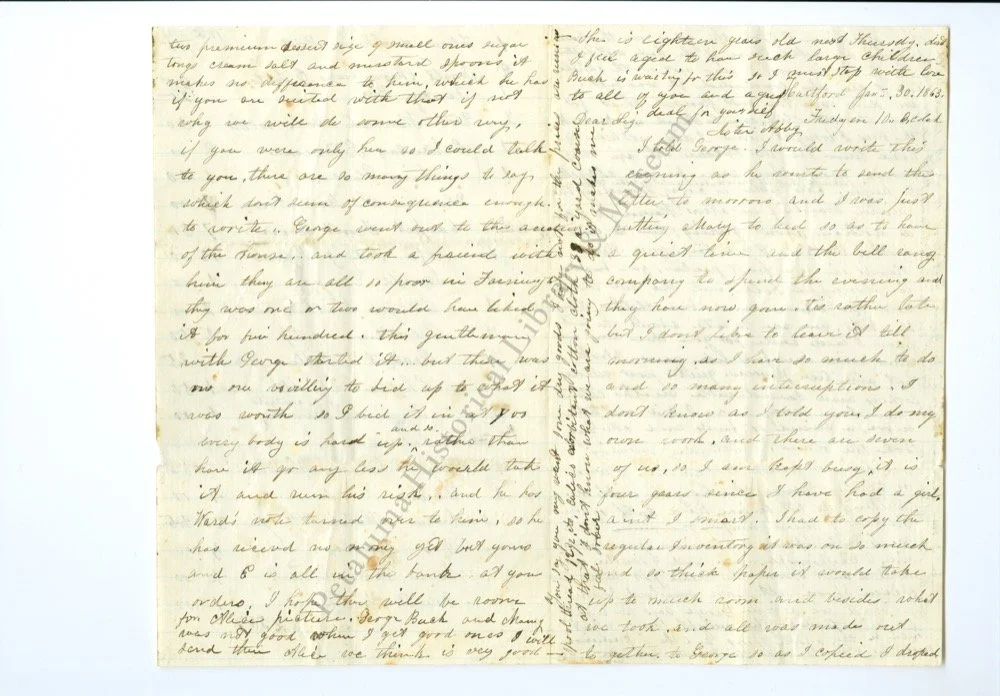 two premium dessert size & small ones sugar
tongs cream salt and mustard spoons, it
makes no difference to him, which he has
if you are suited with that if not
why we will do some other way.
if you were only here so I could talk
to you, there are so many things to say
which don't seem of consequence enough
to write. George went out to the auction
of the house. and took a friend with
him they are all so poor in
they was one or two would have liked
it for five hundred. this gentleman
with George started it. but there was
no one willing to bid up to what it
was worth so I bid it in at
every body is hard up, and so rather than
have it go any less he would take
it and run his risk. and he has
Ward's note turned over to him, so he
has receivd no money yet but yours
and is all in the bank at your
orders, I hope ther will be room
for Alice picture. George Buck and Mary
was not good when I get good ones I will
send them Alice we think is very good
She is eighteen years old next Thursdy, dont
I feel aged to have such large children
Buck is waiting for this so I must stop with love
to all of you and a great
deal for yourself
Sister Abby
Hartford Jan 30. 1863.
Friday eve 10 Oclock
Dear
I told George. I would write this
evening as he wants to send the
letter to morrow and I was just
putting Mary to bed so as to have
a quiet time and the bell rang
company to spend the evening and
they have now gone. tis rather late
but I dont like to leave it till
morning, as I have so much to do
and so many interruptions. I
dont know as I told you, I do my
own work, and there are seven
of us, so I am kept busy, it is
four years since I have had a girl,
aint I smart. I had to copy the
regular Inventory it was on so much
and so thick paper it would take
up to much room and besides what
we took, and all was made out
to gether to George so as I copied I droped
dry goods
thread
cotton cloth
I dont know what we are going to do it makes me
feel sober
Petaluma Historical Library & Museum